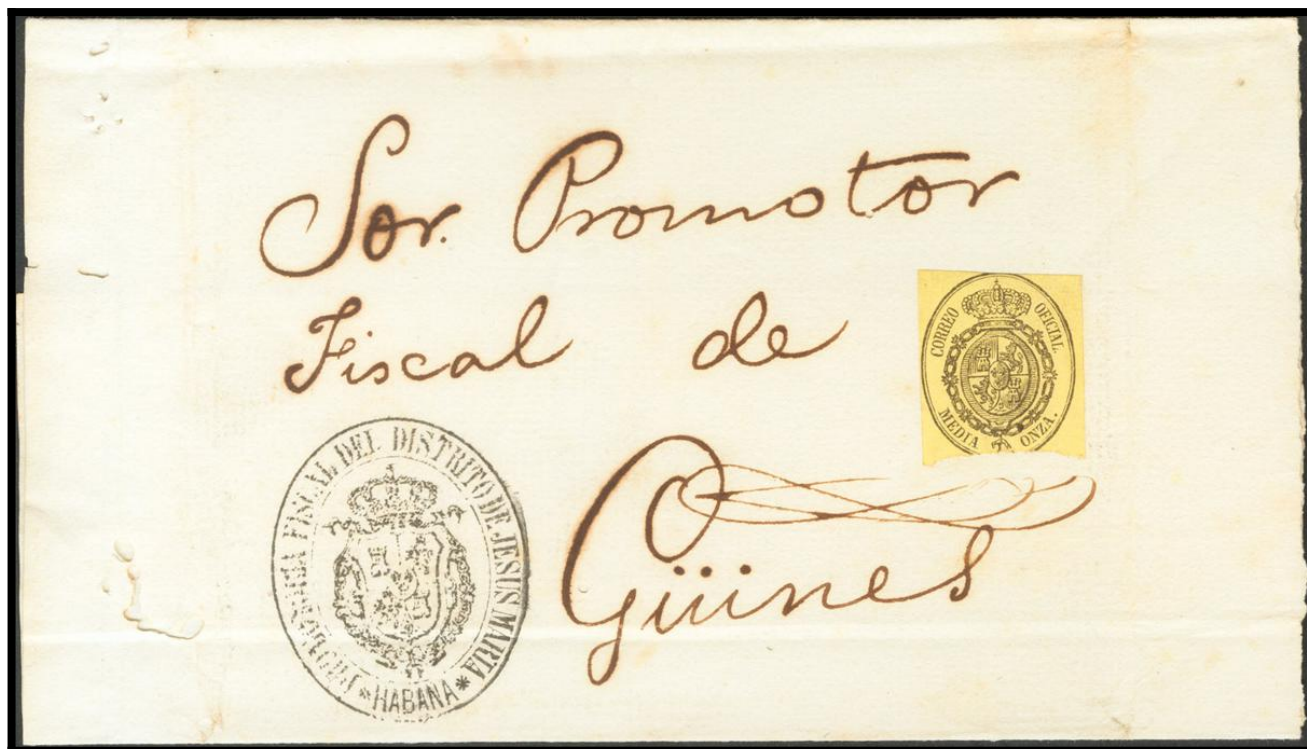 Sor. Promotor
Fiscal de
Güines
CORREO OFICIAL
MEDIA ONZA.
PROMOTORIA FISCAL DEL DISTRITO DE JESUS MARIA
*HABANA*